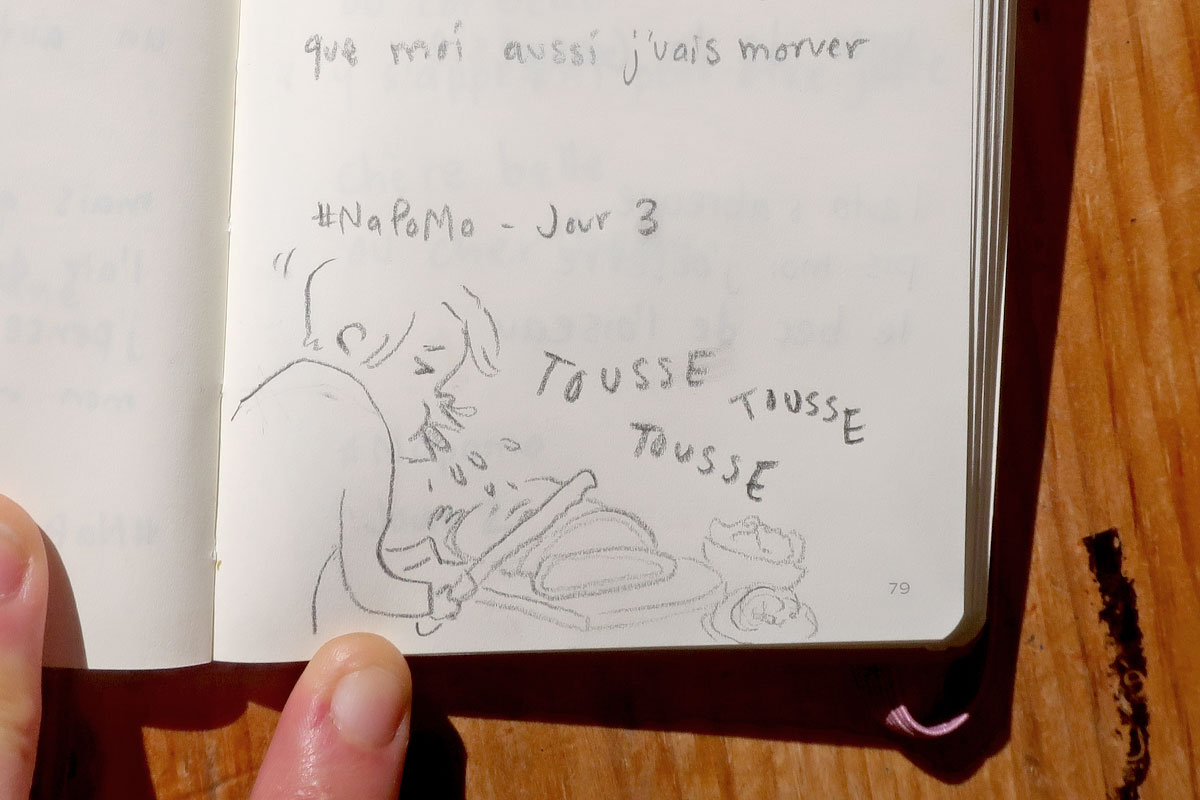 que moi aussi j'vais morver
#NaPoMo - Jour 3
TOUSSE
TOUSSE
TOUSSE
79